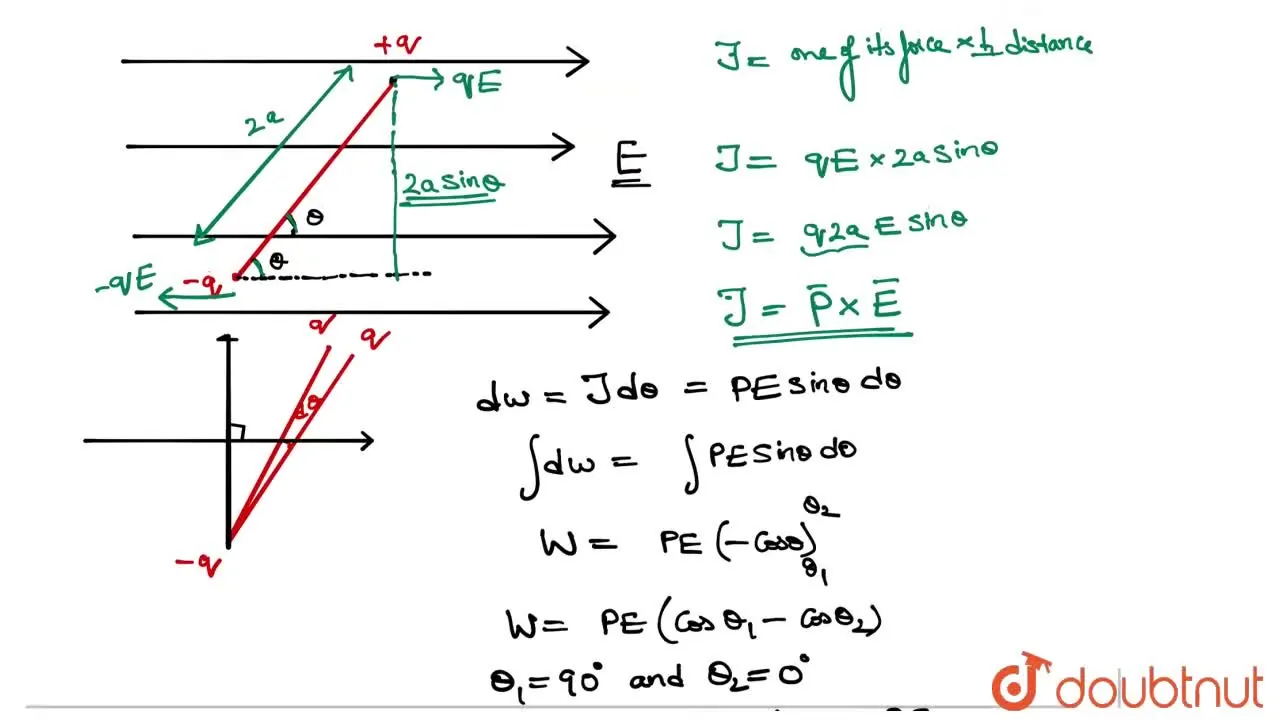 +q
qE
2a
E
2a sinθ
θ
θ
-qE
-q
q
q
dθ
-q
J = one of its force × ⊥r distance
J = qE × 2a sinθ
J = q2a E sinθ
J = P̄ × Ē
dw = J dθ = PE sinθ dθ
∫dw = ∫PE sinθ dθ
W = PE (-cosθ)θ₁^θ₂
W = PE (cos θ₁ - cos θ₂)
θ₁ = 90° and θ₂ = 0°
doubtnut